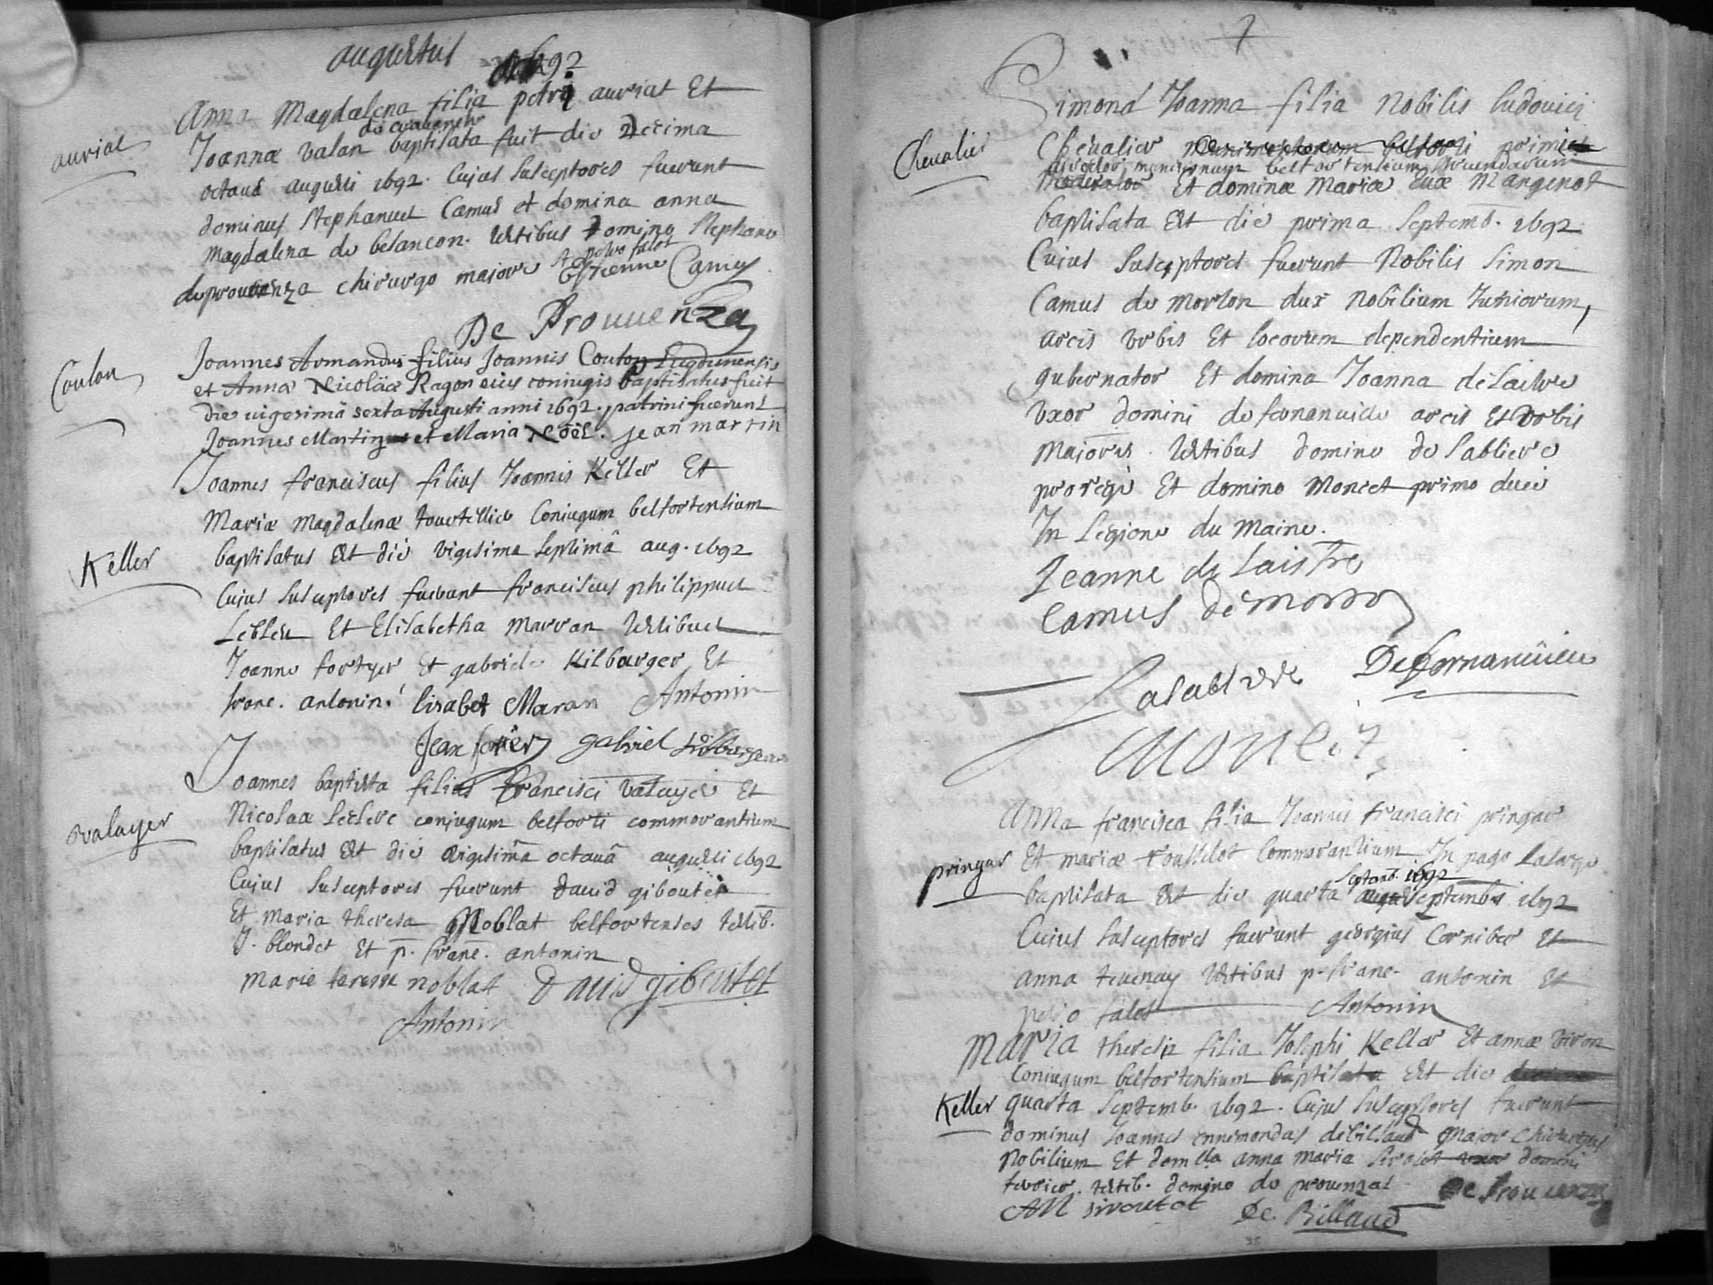 augustus
1692
auriat
Anna Magdalena filia petri auriat Et
Joannæ valan baptisata fuit die decima
octavâ augusti 1692. Cujus susceptores fuerunt
dominus Stephanus Camus et domina anna
Magdalena de besancon. testibus domino Stephano
de prouenza chirurgo majore & petro falot Estienne Camus
De Prouuenza
Coulon
Joannes Armandus filius Joannis Coulon Lugdunensis
et Annæ Nicoläæ Ragon eius coniugis baptisatus fuit
die uigesimâ sexta Augusti anni 1692. patrini fuerunt
Joannes Martin et Maria Noël. jean martin
Keller
Joannes franciscus filius Joannis Keller Et
Mariæ Magdalenæ tourtellier Coniugum belfortensium
baptisatus Est die vigesima septimâ aug. 1692
Cujus susceptores fuerunt franciscus philippus
Lebleu Et Elisabetha Marran testibus
Joanne fortyer Et gabriele Kilburger Et
franc. antonin. Lisabet Maran Antonin
Jean forier gabriel
valayer
Joannes baptista filius francisci valayer Et
Nicolaæ Leclerc conjugum belforti commorantium
baptisatus Est die vigesimâ octavâ augusti 1692
Cujus susceptores fuerunt david giboutet
Et maria theresa Noblat belfortenses testib.
J. blondet Et p. franc. antonin
marie teresse noblat David giboutet
Antonin
Simona Joanna filia Nobilis ludovici
Chevalier
Chevalier belforti primi
director munitionum belfortensium
Et dominæ Mariæ Evæ Mangenot
baptisata Est die prima Septemb. 1692
Cujus susceptores fuerunt Nobilis Simon
Camus de morton dux Nobilium Juniorum,
arcis vrbis Et locorum dependentium
gubernator Et domina Joanna de laistre
vxor domini de fornanuile arcis Et vrbis
Majoris. testibus domino de sabliere
prorege Et domino Moncet primo duce
In legione du Maine.
Jeanne de Laistre
Camus de morton
Lasabliere Defornanüille
pringar
Anna francisca filia Joannis francisci pringar
Et mariæ rousselot Commorantium In pago
baptisata Est die quarta Septemb. 1692 septembris 1692
Cujus susceptores fuerunt georgius Cornibe Et
anna tevenay testibus p. franc. antonin Et
petro falot Antonin
Keller
Maria theresia filia Josephi Keller Et annæ viron
Coniugum belfortensium baptisata Est die
quarta Septemb. 1692. Cujus susceptores fuerunt
dominus Joannes ennemondas debillaud Major chirurgus
Nobilium Et domlla anna maria domini
testib. domino de prouenzal De Prouuenza
AM siroutot De Billaud